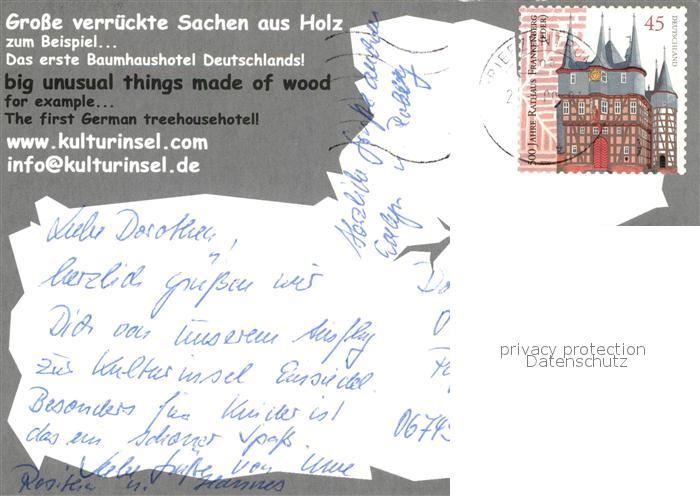 Große verrückte Sachen aus Holz
zum Beispiel...
Das erste Baumhaushotel Deutschlands!
big unusual things made of wood
for example...
The first German treehousehotel!
www.kulturinsel.com
info@kulturinsel.de
Liebe Dorothea,
herzlich grüßen wir
Dich von unserem Ausflug
zur Kulturinsel Einsiedel.
Besonders für Kinder ist
das ein schöner Spaß.
Liebe Grüße von Uwe
Rosita u. Hannes
Herzliche Grüße
Evelyn u.
45
DEUTSCHLAND
500 JAHRE RATHAUS FRANKENBERG
(EDER)
06745
privacy protection
Datenschutz